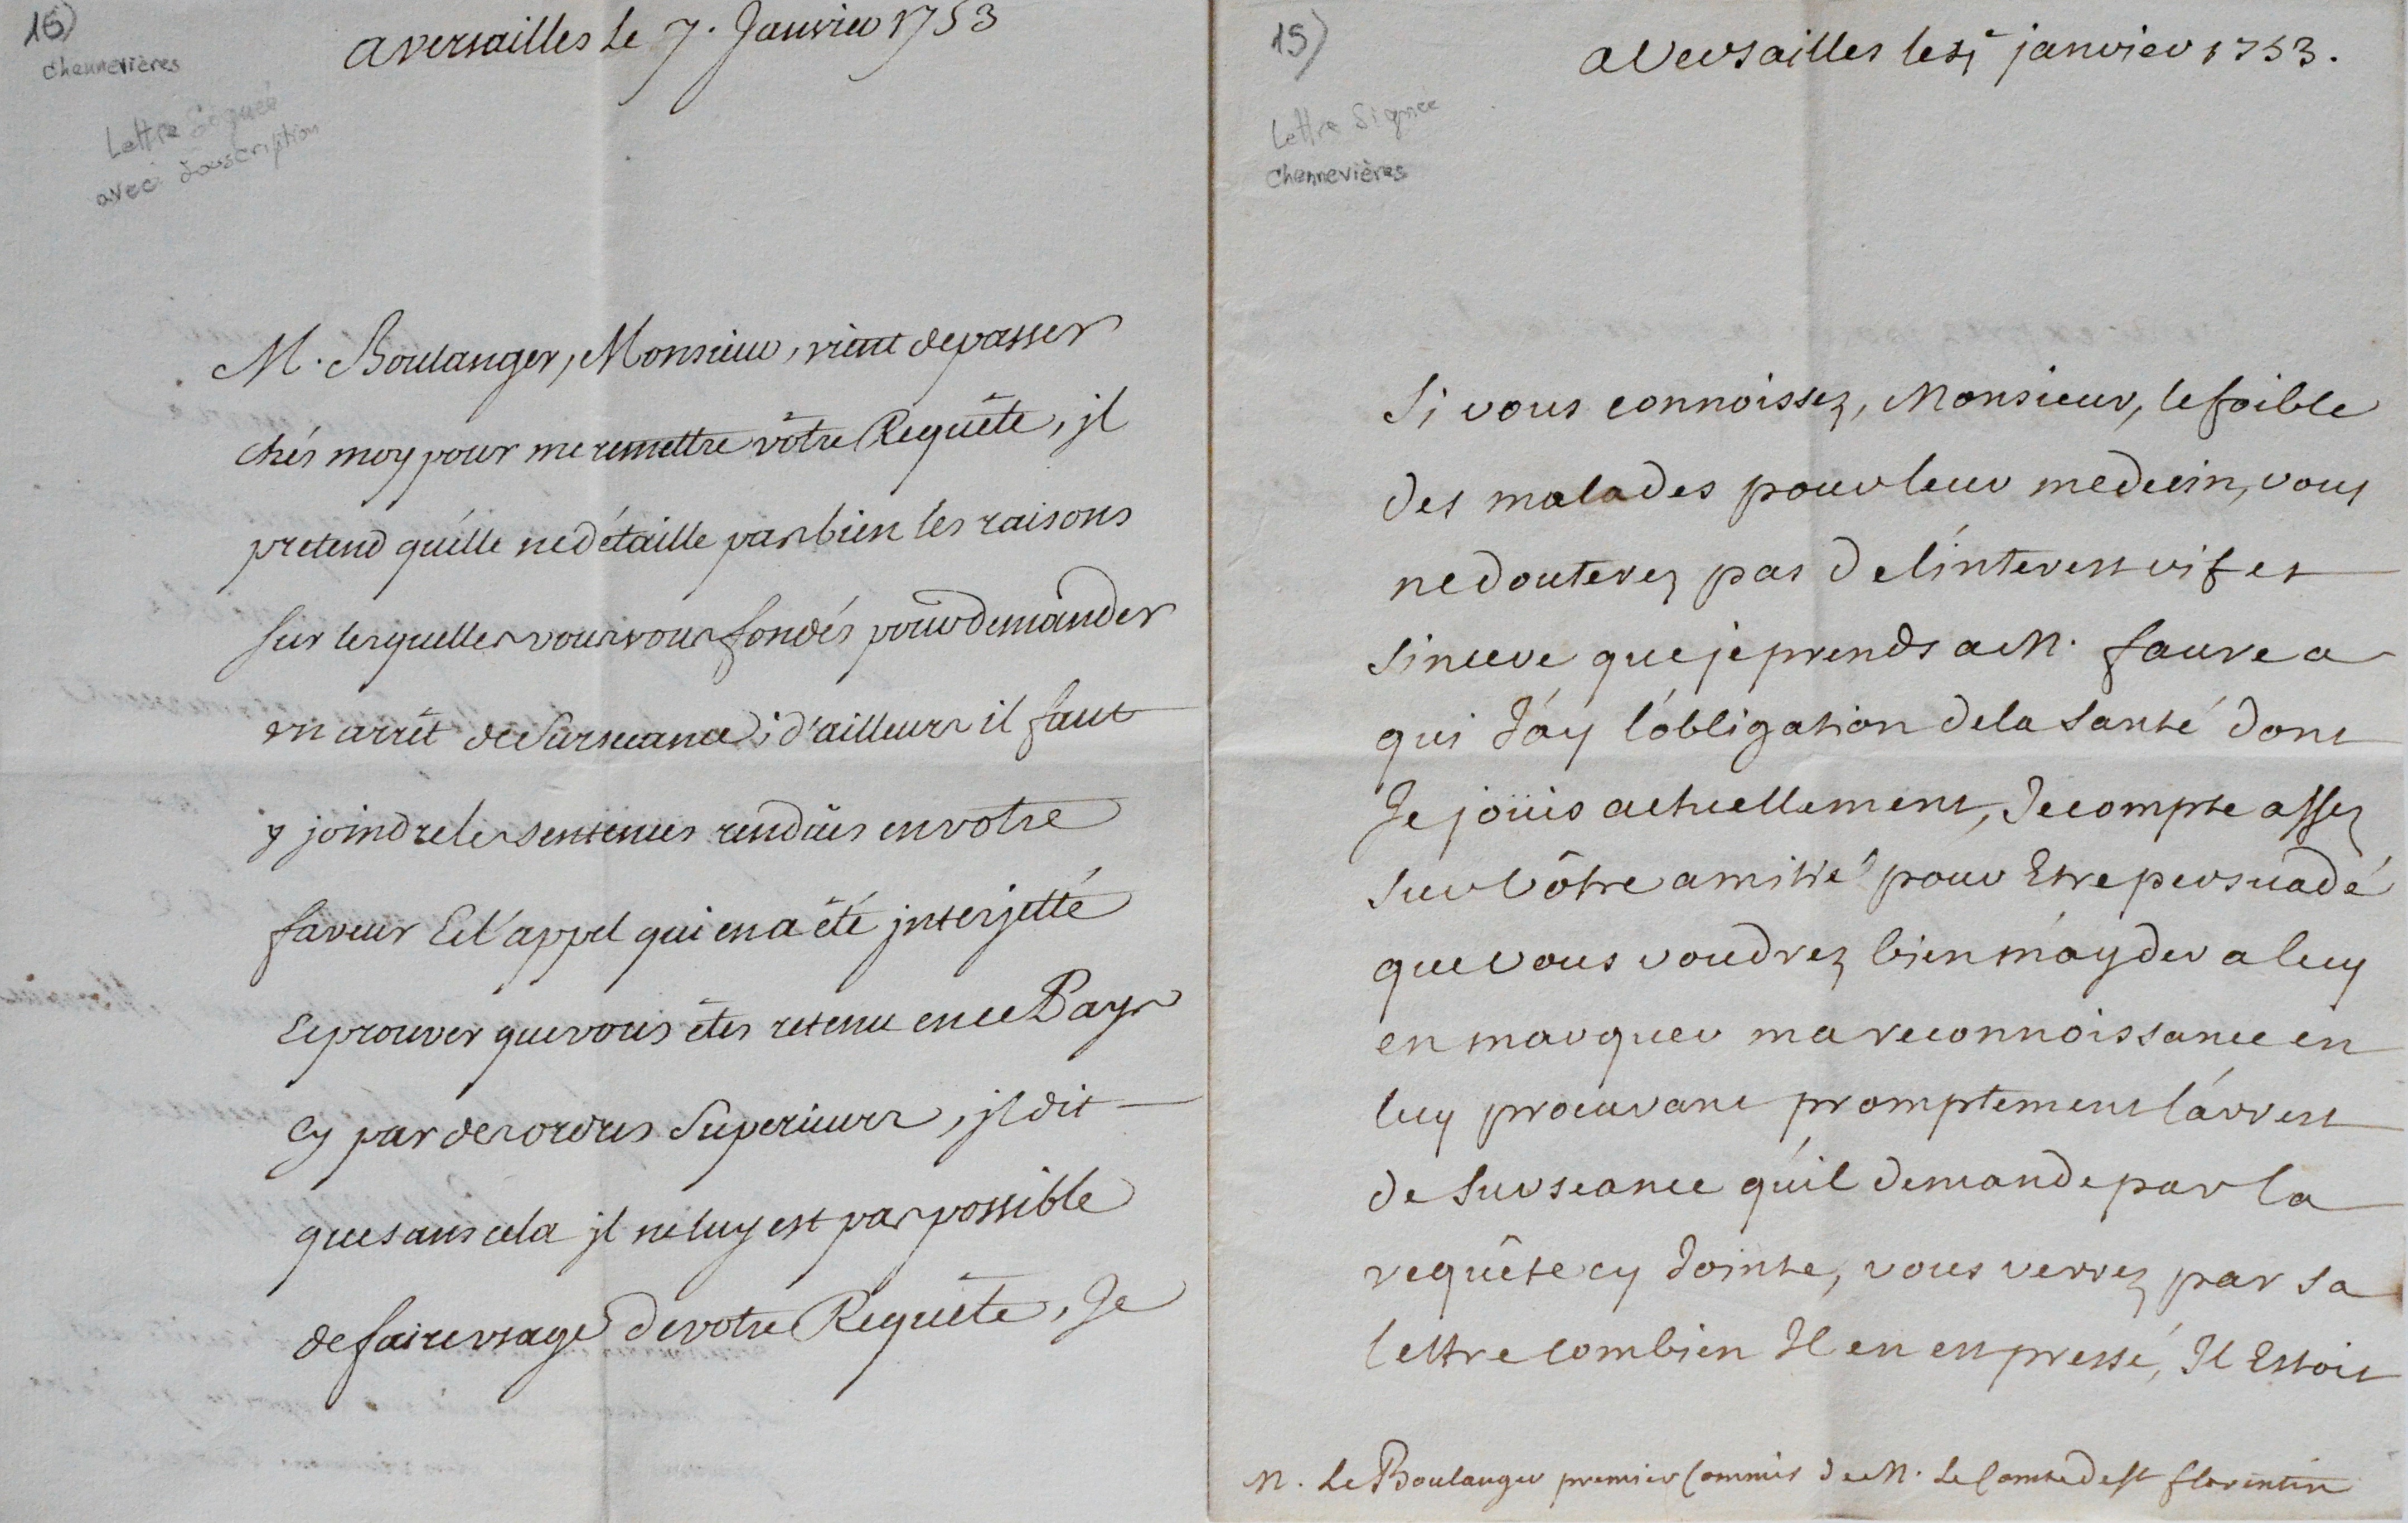 16)
Chennevières
Lettre Signée
avec Souscription
a versailles le 7. Janvier 1753
M. Boulanger, Monsieur, vient de passer
chés moy pour me remettre vôtre Requête, jl
pretend qu'elle ne détaille pas bien les raisons
sur lesquelles vous vous fondés pour demander
un arrêt de Surseance; d'ailleurs il faut
y joindre les sentences rendües en votre
faveur Et l'appel qui en a été jnterjetté
Et prouver que vous êtes retenu en ce Pays
Cy par des ordres Superieurs, jl dit
que sans cela jl ne luy est pas possible
de faire usage de votre Requête, Je
15)
Lettre Signée
Chennevières
a Versailles le janvier 1753.
Si vous connoissez, Monsieur, le foible
des malades pour leur medecin, vous
ne douterez pas de l'interest vif et
sincere que je prends a M. faure a
qui J'ay l'obligation de la santé dont
Je joüis actuellement, Je compte assez
sur Vôtre amitié pour Etre persuadé
que Vous voudrez bien m'ayder a luy
en marquer ma reconnoissance en
luy procurant promptement l'arrest
de surseance qu'il demande par la
requête cy Jointe, vous verrez par sa
lettre combien Il en est pressé, Il Estoit
M. Le Boulanger premier Commis de M. Le Comte de St florentin